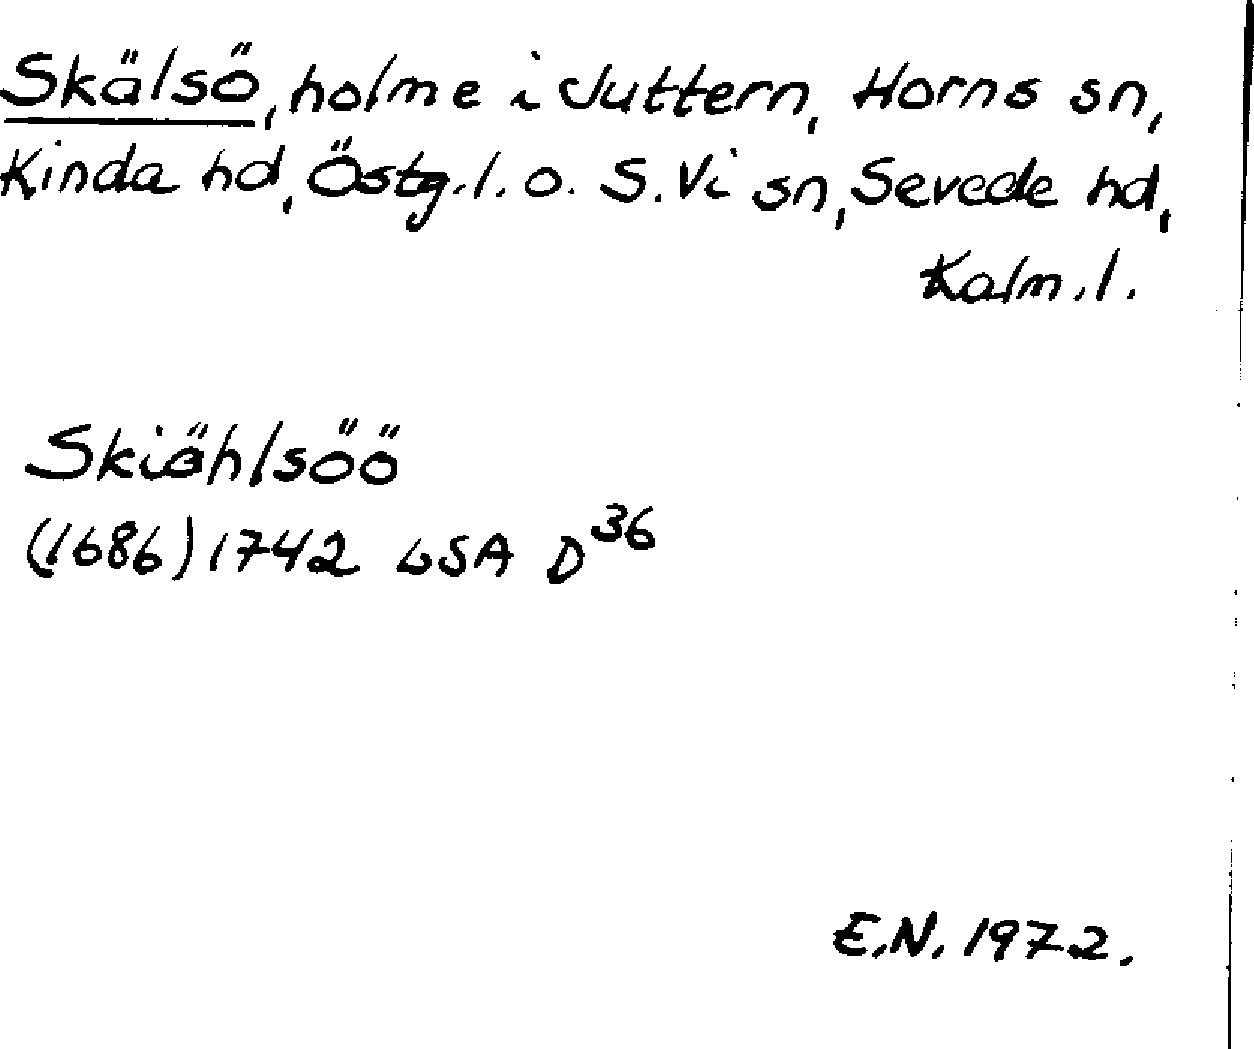 Skälsö, holme i Juttern, Horns sn,
Kinda hd, Östg.l. o. S. Vi sn, Sevede hd,
Kalm.l.
Skiählsöö
(1686) 1742 LSA D36
E.N. 1972.